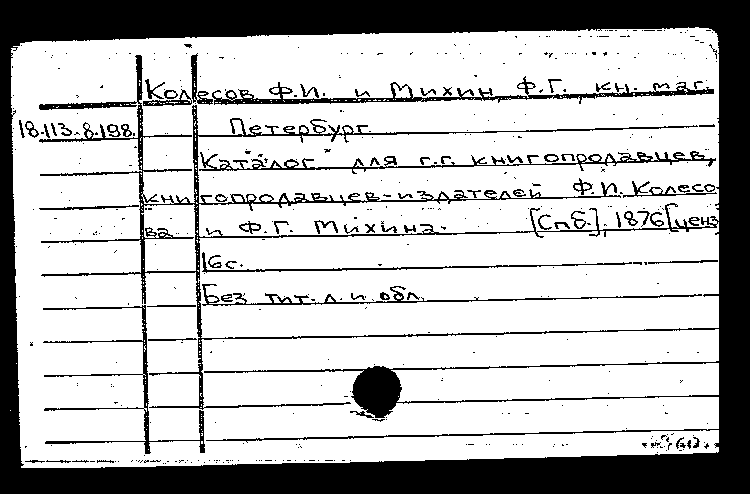 Колесов Ф.И. и Михин Ф.Г., кн. маг.
18.113.8.198. Петербург.
"Каталог" для г.г. книгопродавцев,
книгопродавцев-издателей Ф.И. Колесо-
ва и Ф.Г. Михина. [Спб.], 1876 [ценз
16с.
Без тит. л. и обл.